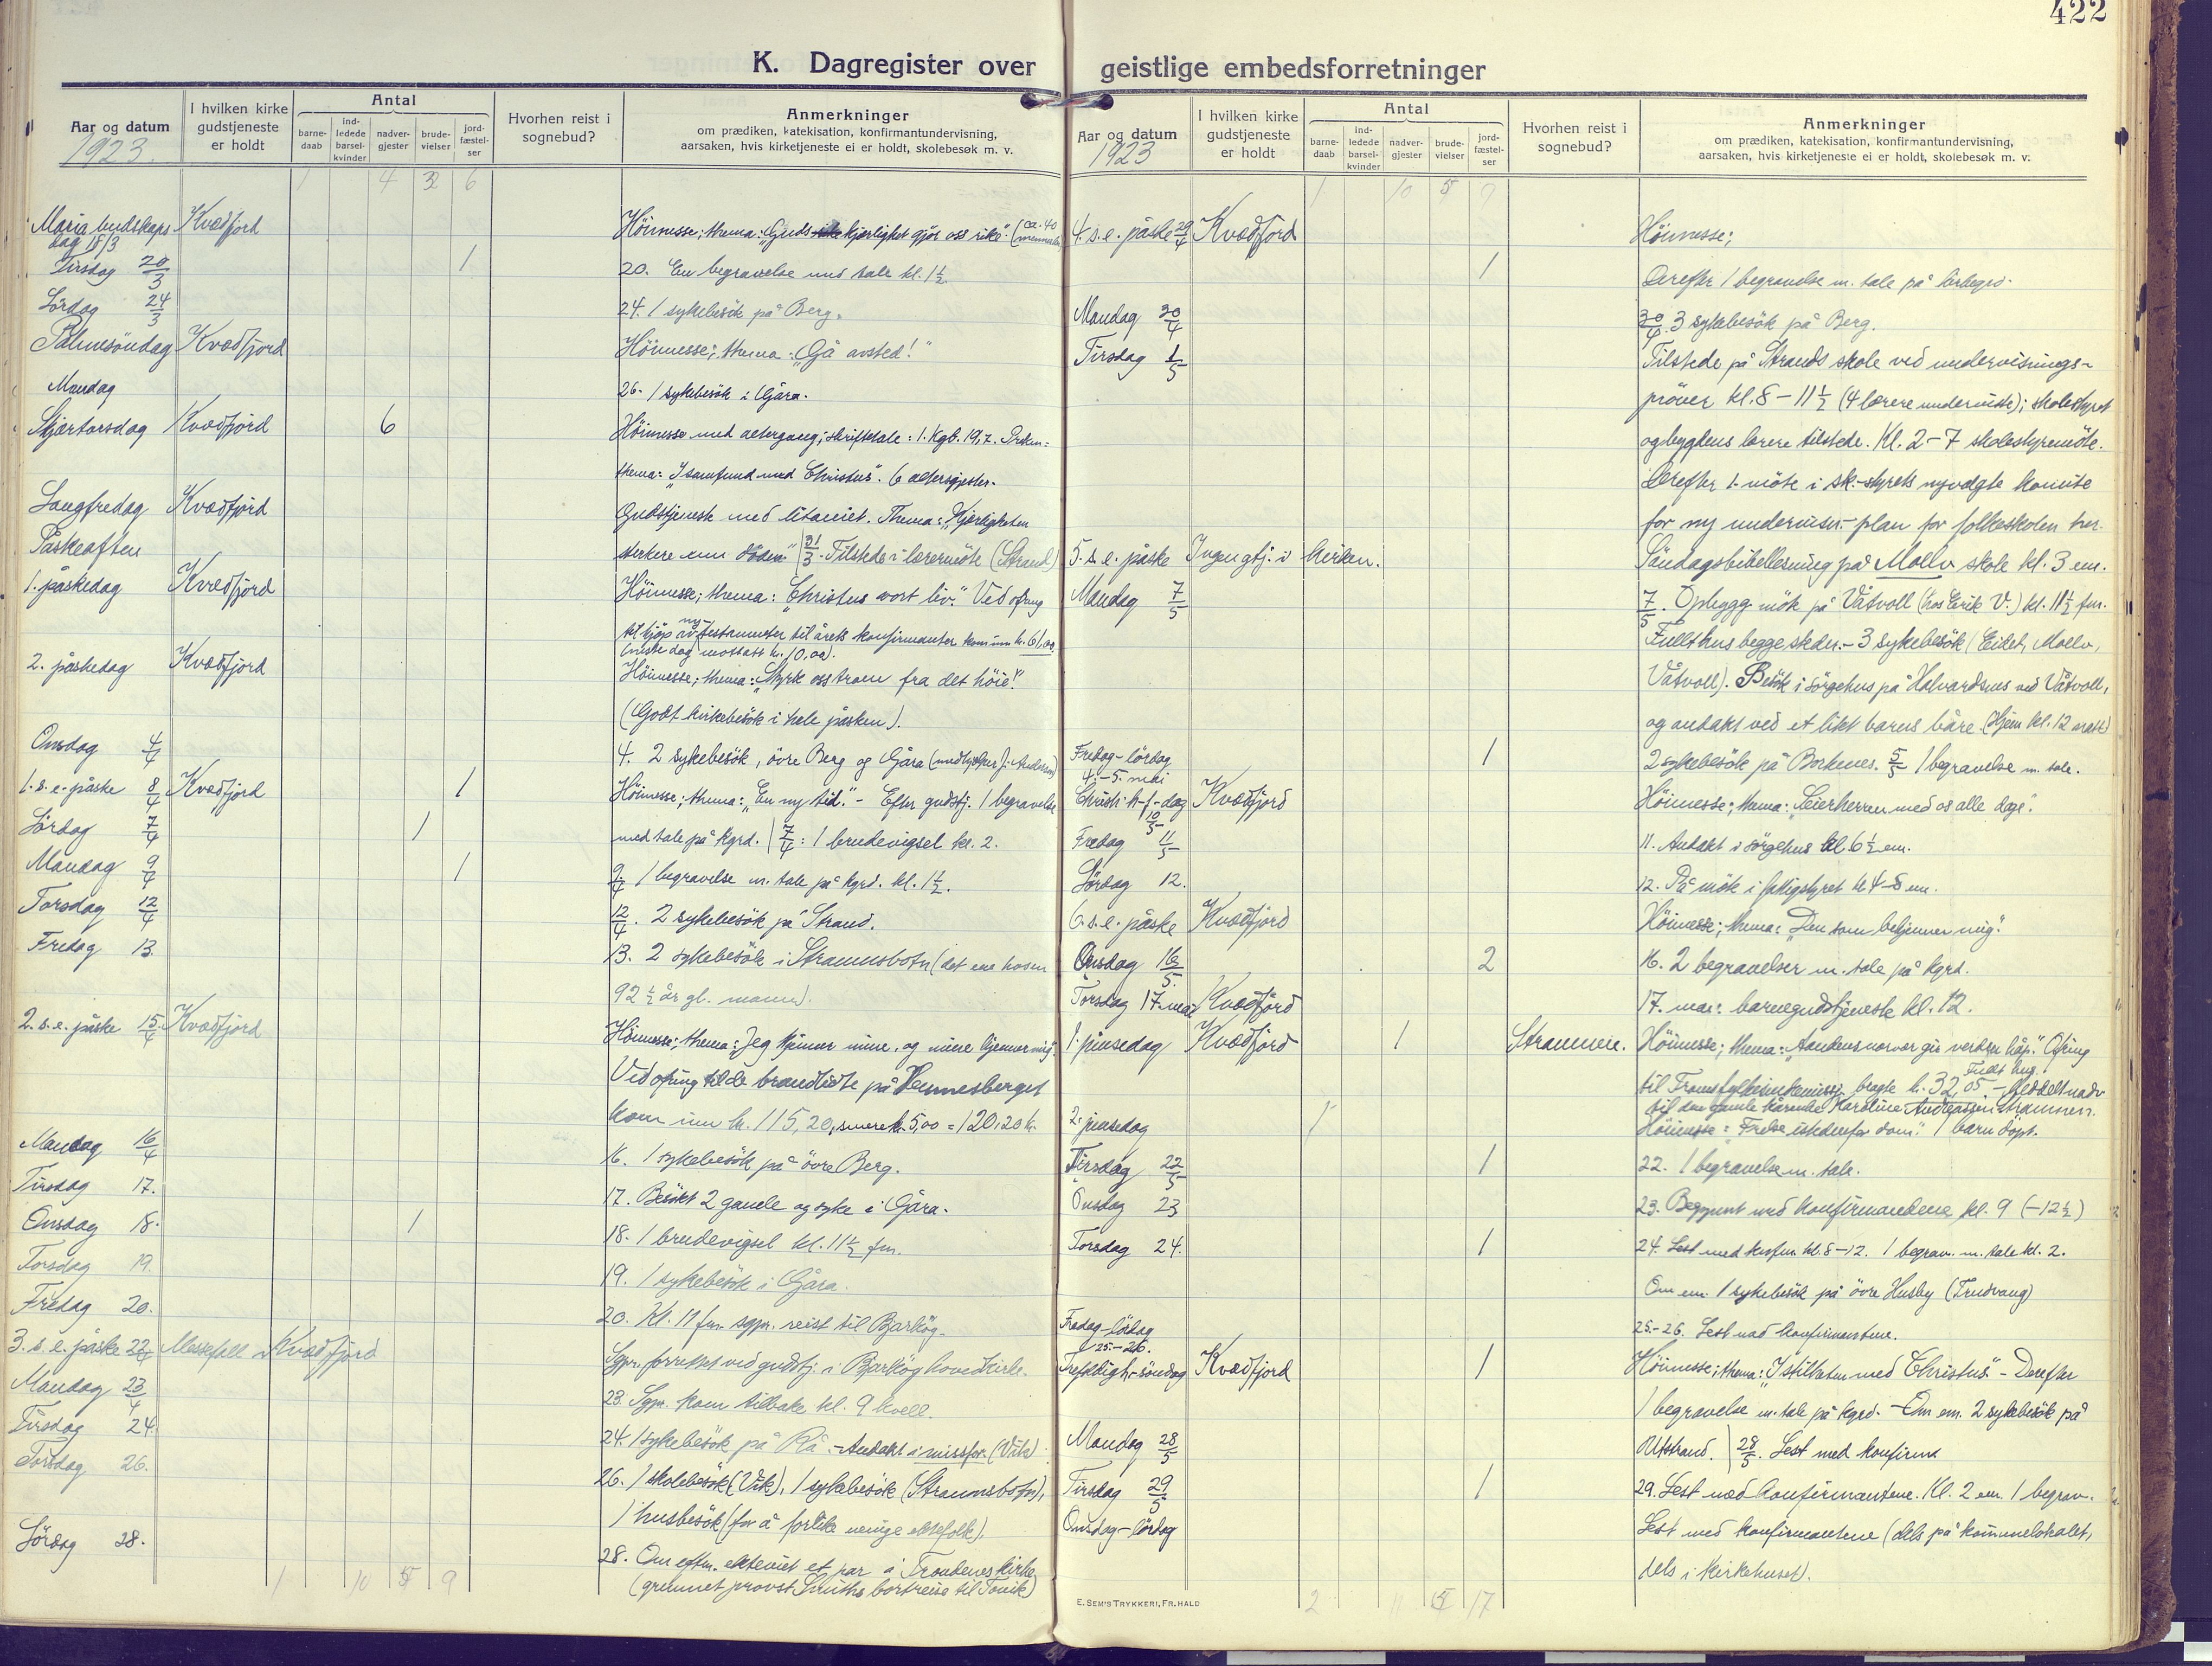 422
K. Dagregister over geistlige embedsforretninger
Aar og datum
1923.
I hvilken kirke gudstjeneste er holdt
Antal
barnedaab
indledede barselkvinder
nadvergjester
brudevielser
jordfæstelser
Hvorhen reist i sognebud?
Anmerkninger
om prædiken, katekisation, konfirmantundervisning, aarsaken, hvis kirketjeneste ei er holdt, skolebesøk m. v.
1 4 3 6
Maria budskaps dag 18/3 Kvædfjord Höimesse; thema: "Guds kjærlighet gjör oss rike" (ca. 40 mennesker)
Tirsdag 20/3 1 20. En begravelse med tale kl. 1½.
Lördag 24/3 24. 1 sykebesök på Berg.
Palmesöndag Kvædfjord Höimesse; thema: "Gå avsted!"
Mandag 26. 1 sykebesök i Gåra.
Skjærtorsdag Kvædfjord 6 Höimesse med altergang; skriftetale: 1. Kgb. 19,7. Preken-
thema: "I samfund med Christus". 6 altergjester.
Langfredag Kvædfjord Gudstjeneste med litaniet. Thema: "Kjærligheten
Påskeaften sterkere enn döden" | 31/3. Tilstede i lærermöte (Strand)
1. påskedag Kvædfjord Höimesse; thema: "Christus vort liv." Ved ofring
til kjöp av ny-testamenter til årets konfirmanter kom inn kr. 61,00
(neste dag mottatt kr. 10,00).
2. påskedag Kvædfjord Höimesse; thema: "Styrk oss troen fra det höie!"
(Godt kirkebesök i hele påsken).
Onsdag 4/4 4. 2 sykebesök, övre Berg og Gåra
1. s. e. påske 8/4 Kvædfjord 1 Höimesse; thema: "En ny tid." - Efter gudstj. 1 begravelse
Lördag 7/4 1 med tale på kgrd. | 7/4: 1 brudevigsel kl. 2.
Mandag 9/4 1 9/4 1 begravelse m. tale på kgrd. kl. 1½.
Torsdag 12/4 12/4. 2 sykebesök på Strand.
Fredag 13. 13. 2 sykebesök i Straumsbotn (det ene hos en
92½ år gl. mann).
2. s. e. påske 15/4 Kvædfjord Höimesse; thema: Jeg kjenner mine, og mine kjenner mig".
Ved ofring til de brandlidte på Hennesberget
kom inn kr. 115,20, senere kr. 5,00 = 120,20 kr.
Mandag 16/4 16. 1 sykebesök på övre Berg.
Tirsdag 17. 17. Besökt 2 gamle og syke i Gåra.
Onsdag 18. 1 18. 1 brudevigsel kl. 11½ fm.
Torsdag 19. 19. 1 sykebesök i Gåra.
Fredag 20. 20. Kl. 11 fm. sgpr. reist til Bjarköy.
3. s. e. påske 22/4 Messefall i Kvædfjord Sgpr. forrettet ved gudstj. i Bjarköy hovedkirke.
Mandag 23/4 23. Sgpr. kom tilbake kl. 9 kvell.
Tirsdag 24. 24. 1 sykebesök på Rå. - Andakt i missfor. (Vik)
Torsdag 26. 26. 1 skolebesök (Vik), 1 sykebesök (Straumsbotn),
1 husbesök (for å forlike uenige ektefolk).
Lördag 28. 28. Om eftm. ekteviet et par i Trondenes kirke
(grunnet provst Smiths bortreise til Tovik)
1 10 5 9
Aar og datum
1923
I hvilken kirke gudstjeneste er holdt
Antal
barnedaab
indledede barselkvinder
nadvergjester
brudevielser
jordfæstelser
Hvorhen reist i sognebud?
Anmerkninger
om prædiken, katekisation, konfirmantundervisning, aarsaken, hvis kirketjeneste ei er holdt, skolebesøk m. v.
1 10 5 9
4. s. e. påske 29/4 Kvædfjord Höimesse;
1 Derefter 1 begravelse m. tale på
Mandag 30/4 30/4. 3 sykebesök på Berg.
Tirsdag 1/5 Tilstede på Strands skole ved undervisnings-
pröver kl. 8 - 11½ (4 lærere underviste); skolestyret
og bygdens lærere tilstede. Kl. 2-7 skolestyremöte.
Derefter 1. möte i sk.-styrets nyvalgte komite
for ny undervisn.-plan for folkeskolen her.
5. s. e. påske Ingen gtj. i kirken. Söndagsbibellesning på Mollv skole kl. 3 em.
Mandag 7/5 7/5. Opbygg. möte på Våtvoll (hos Erik V.) kl. 11½ fm.
Fullt hus begge steder. - 3 sykebesök (Eidet, Mollv,
Våtvoll). Besök i sörgehus på Halvardsnes ved Våtvoll,
og andakt ved et likt barns båre. (Hjem kl. 12 natt)
Fredag - lördag 4. - 5. mai 1 2 sykebesök på Borkenes. 5/5 1 begravelse m. tale.
Christi h-f-dag 10/5 Kvædfjord Höimesse; thema: "Seierherren med os alle dage".
Fredag 11/5 11. Andakt i sörgehus kl. 6½ em.
Lördag 12. 12. På möte i fattigstyret kl. 4-8 em.
6. s. e. påske Kvædfjord Höimesse; thema: "Den som bekjenner mig".
Onsdag 16/5. 2 16. 2 begravelser m. tale på kgrd.
Torsdag 17. mai Kvædfjord 17. mai: barnegudstjeneste kl. 12.
1. pinsedag Kvædfjord 1 Straumen. Höimesse; thema: "Aandens nærvær gir verden håp." Ofring
til Troms fylkes indremissj. bragte kr. 32,05 - Fullt hus. Meddelt nadv.
til den gamle Karoline Andreassen Straumen.
2. pinsedag 1 Höimesse = "Frelse istedenfor dom". 1 barn döpt.
Tirsdag 22/5 1 22. 1 begravelse m. tale.
Onsdag 23 23. Begynt med konfirmandene kl. 9 (-12½)
Torsdag 24. 1 24. Lest med konfirm. kl. 8-12. 1 begrav. m. tale kl. 2.
Om em. 1 sykebesök på övre Husby (Trudvang)
Fredag-lördag 25.-26. 25.-26. Lest med konfirmantene.
Trefoldigh.-söndag Kvædfjord 1 Höimesse; thema: "I stillheten med Christus". - Derefter
1 begravelse m. tale på kgrd. - Om em. 2 sykebesök på
Mandag 28/5 Utstrand. | 28/5. Lest med konfirm.
Tirsdag 29/5 1 29. Lest med konfirmantene. Kl. 2 em. 1 begrav.
Onsdag-lördag Lest med konfirmantene (dels på kommunelokalet,
dels i kirkehuset).
2 11 5 17
E. SEM'S TRYKKERI, FR.HALD